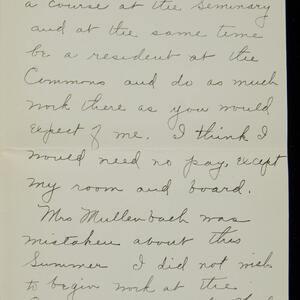 a course at the Seminary
and at the same time
be a resident at the
Commons and do as much
work there as you would
expect of me. I think I
would need no pay, except
my room and board.
Mrs Mullenbach was
mistaken about this
Summer I did not wish
to begin work at the